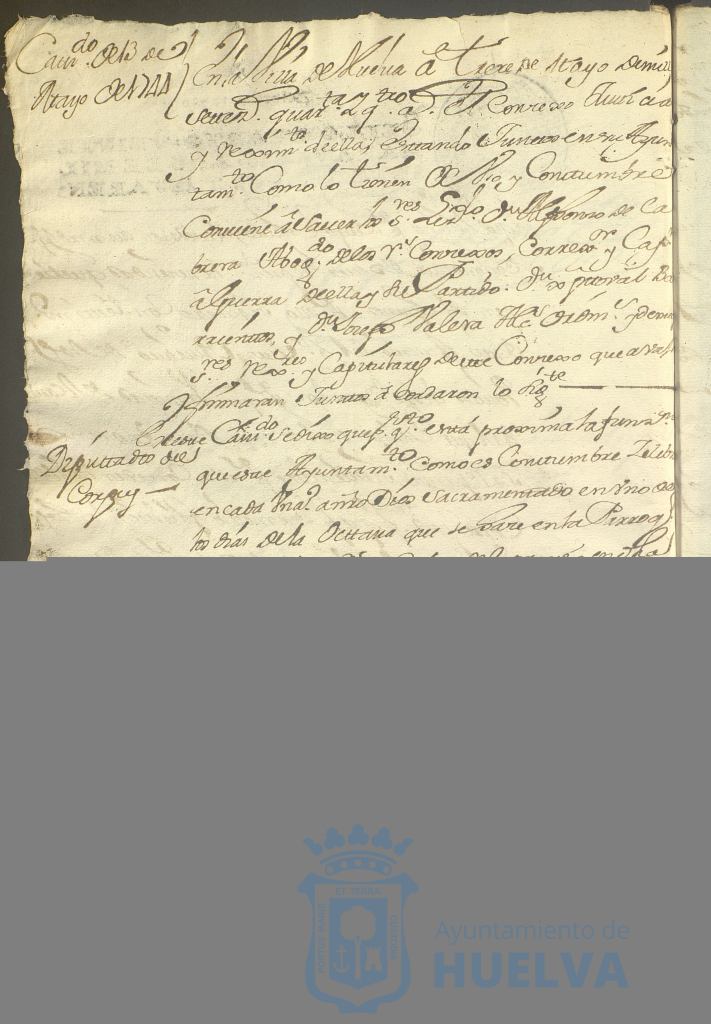 Cavi.do de 13 de
Mayo de 1744
En la Villa de Huelva a trece de Mayo de mill
setez.s quar.ta y q.tro a.s El Concexo Justicia
y reximi.to de ella, estando Juntos en su Ayun
tam.to Como lo tienen de Uso, y Constumbre
Conviene a saver los s.res Liz.do D.n Alphonso de Ca
brera Abog.do de los r.s Consexos, Correx.or y Cap.n
a Guerra de ella y su Partido. D.n
y D.n Josep Valera Alc.s Ordin.s y demas
s.res rex.res y Capitulares de este Concexo que avajo
firmaran Juntos acordaron lo sig.te
Diputado de
Corpus
En este Cavi.do se dixo que p.r q.to está proxima la func.n
que este Ayuntam.to como es Constumbre Zelebra
en cada Un año a Dios Sacramentado en Uno de
los dias de la Octtava que se hace en la Parroq.l
ET TERRA
PORTUS MARIS
CUSTODIA
Ayuntamiento de
HUELVA